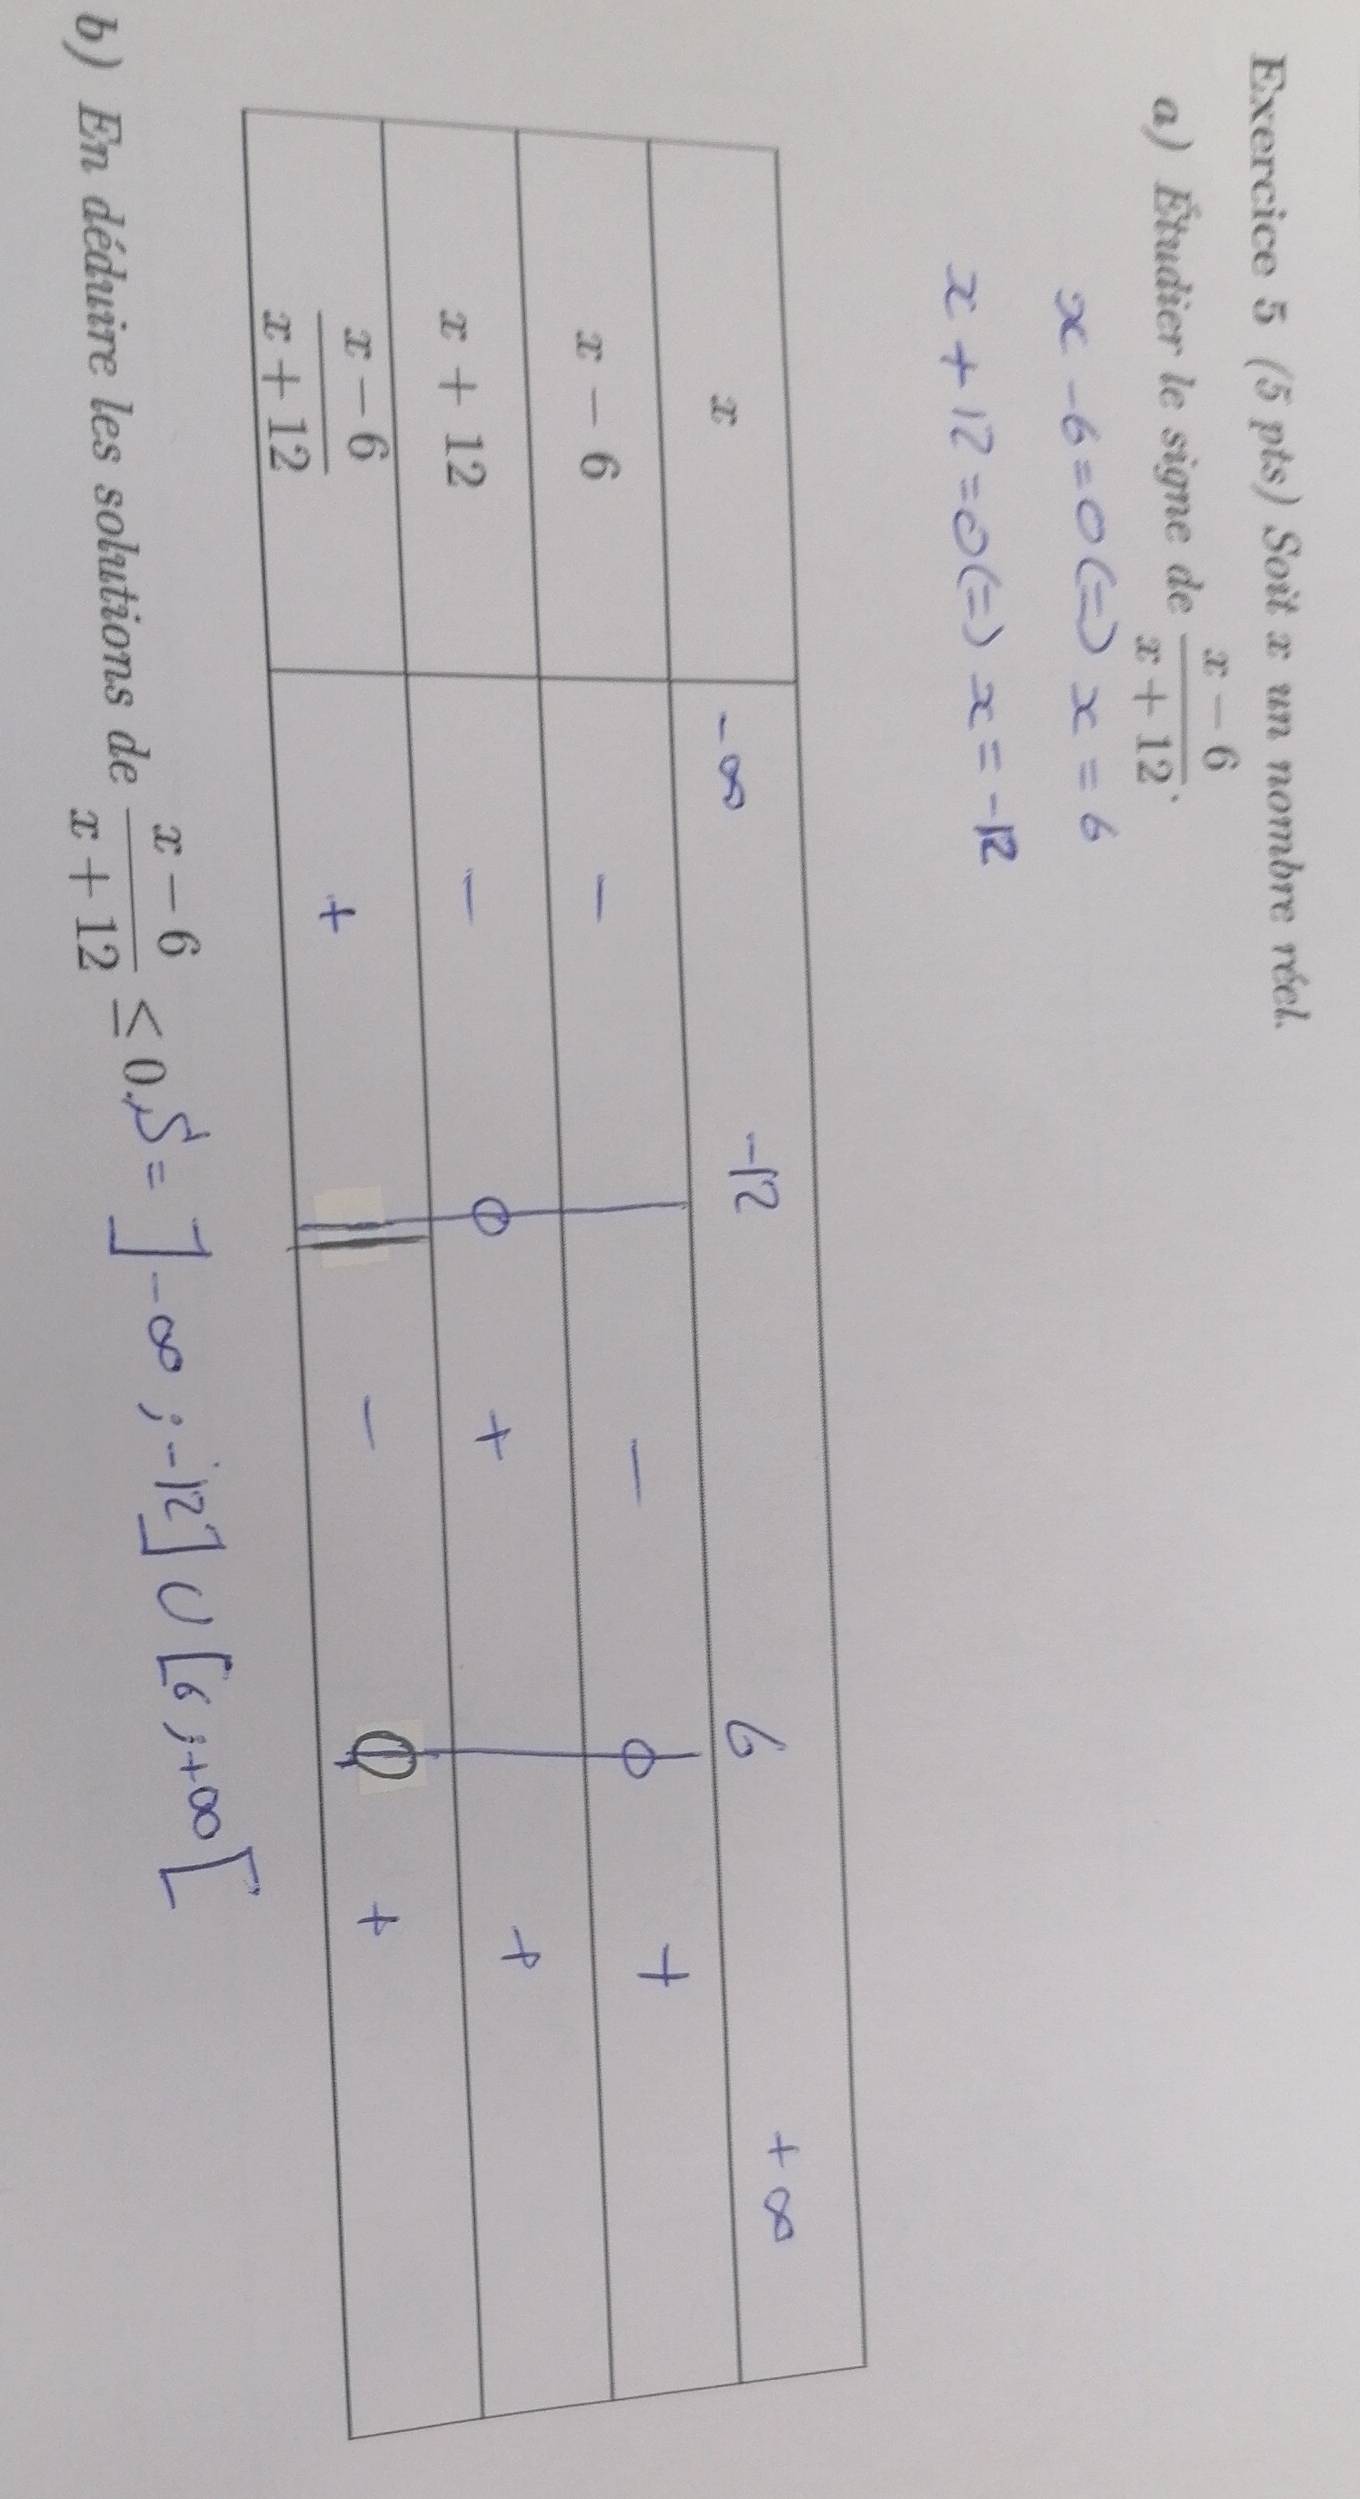 Exercice 5 (5 pts) Soit x un nombre réel.
a) Étudier le signe de (x − 6)/(x + 12).
x - 6 = 0 (=) x = 6
x + 12 = 0 (=) x = -12
x -∞ -12 6 +∞
x − 6 - - 0 +
x + 12 - 0 + +
(x − 6)/(x + 12) + || - 0 +
b) En déduire les solutions de (x − 6)/(x + 12) ≤ 0. S = ]-∞ ; -12] ∪ [6 ; +∞[